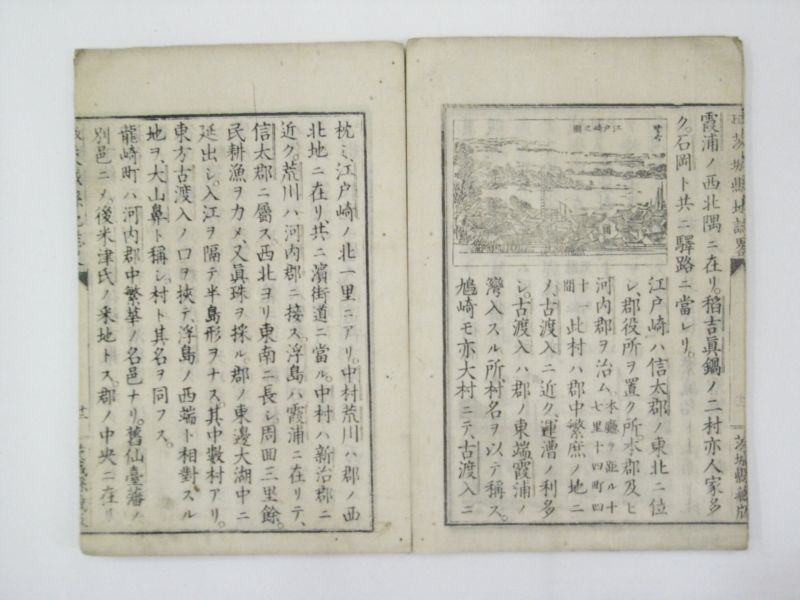 茨城縣地誌畧
茨城縣藏版
霞浦ノ西北隅ニ在リ。稻吉眞鍋ノ二村亦人家多
ク。石岡ト共ニ驛路ニ當レリ。
江戸崎之圖
江戸崎ハ信太郡ノ東北ニ位
シ、郡役所ヲ置ク所。本郡及ヒ
河内郡ヲ治ム本廳ヲ距ル十七里十四町四
十一間此村ハ郡中繁庶ノ地ニ
ノ、古渡入ニ近ク、運漕ノ利多
シ。古渡入ハ郡ノ東端霞浦ノ
灣入スル所、村名ヲ以テ稱ス。
鳩崎モ亦大村ニテ、古渡入ニ
枕ミ、江戸崎ノ北一里ニアリ。中村荒川ハ郡ノ西
北地ニ在リ、共ニ濱街道ニ當ル。中村ハ新治郡ニ
近ク。荒川ハ河内郡ニ接ス。浮島ハ霞浦ニ在リテ、
信太郡ニ屬ス。西北ヨリ東南ニ長シ、周回三里餘。
民耕漁ヲ力メ、又眞珠ヲ採ル。郡ノ東邊大湖中ニ
延出シ。入江ヲ隔テ半島形ヲナス。其中數村アリ。
東方古渡入ノ口ヲ挾テ、浮島ノ西端ト相對スル
地ヲ、大山鼻ト稱シ、村ト其名ヲ同フス。
龍崎町ハ河内郡中繁華ノ名邑ナリ。舊仙臺藩ノ
別邑ニメ、後米津氏ノ釆地トス。郡ノ中央ニ在リ